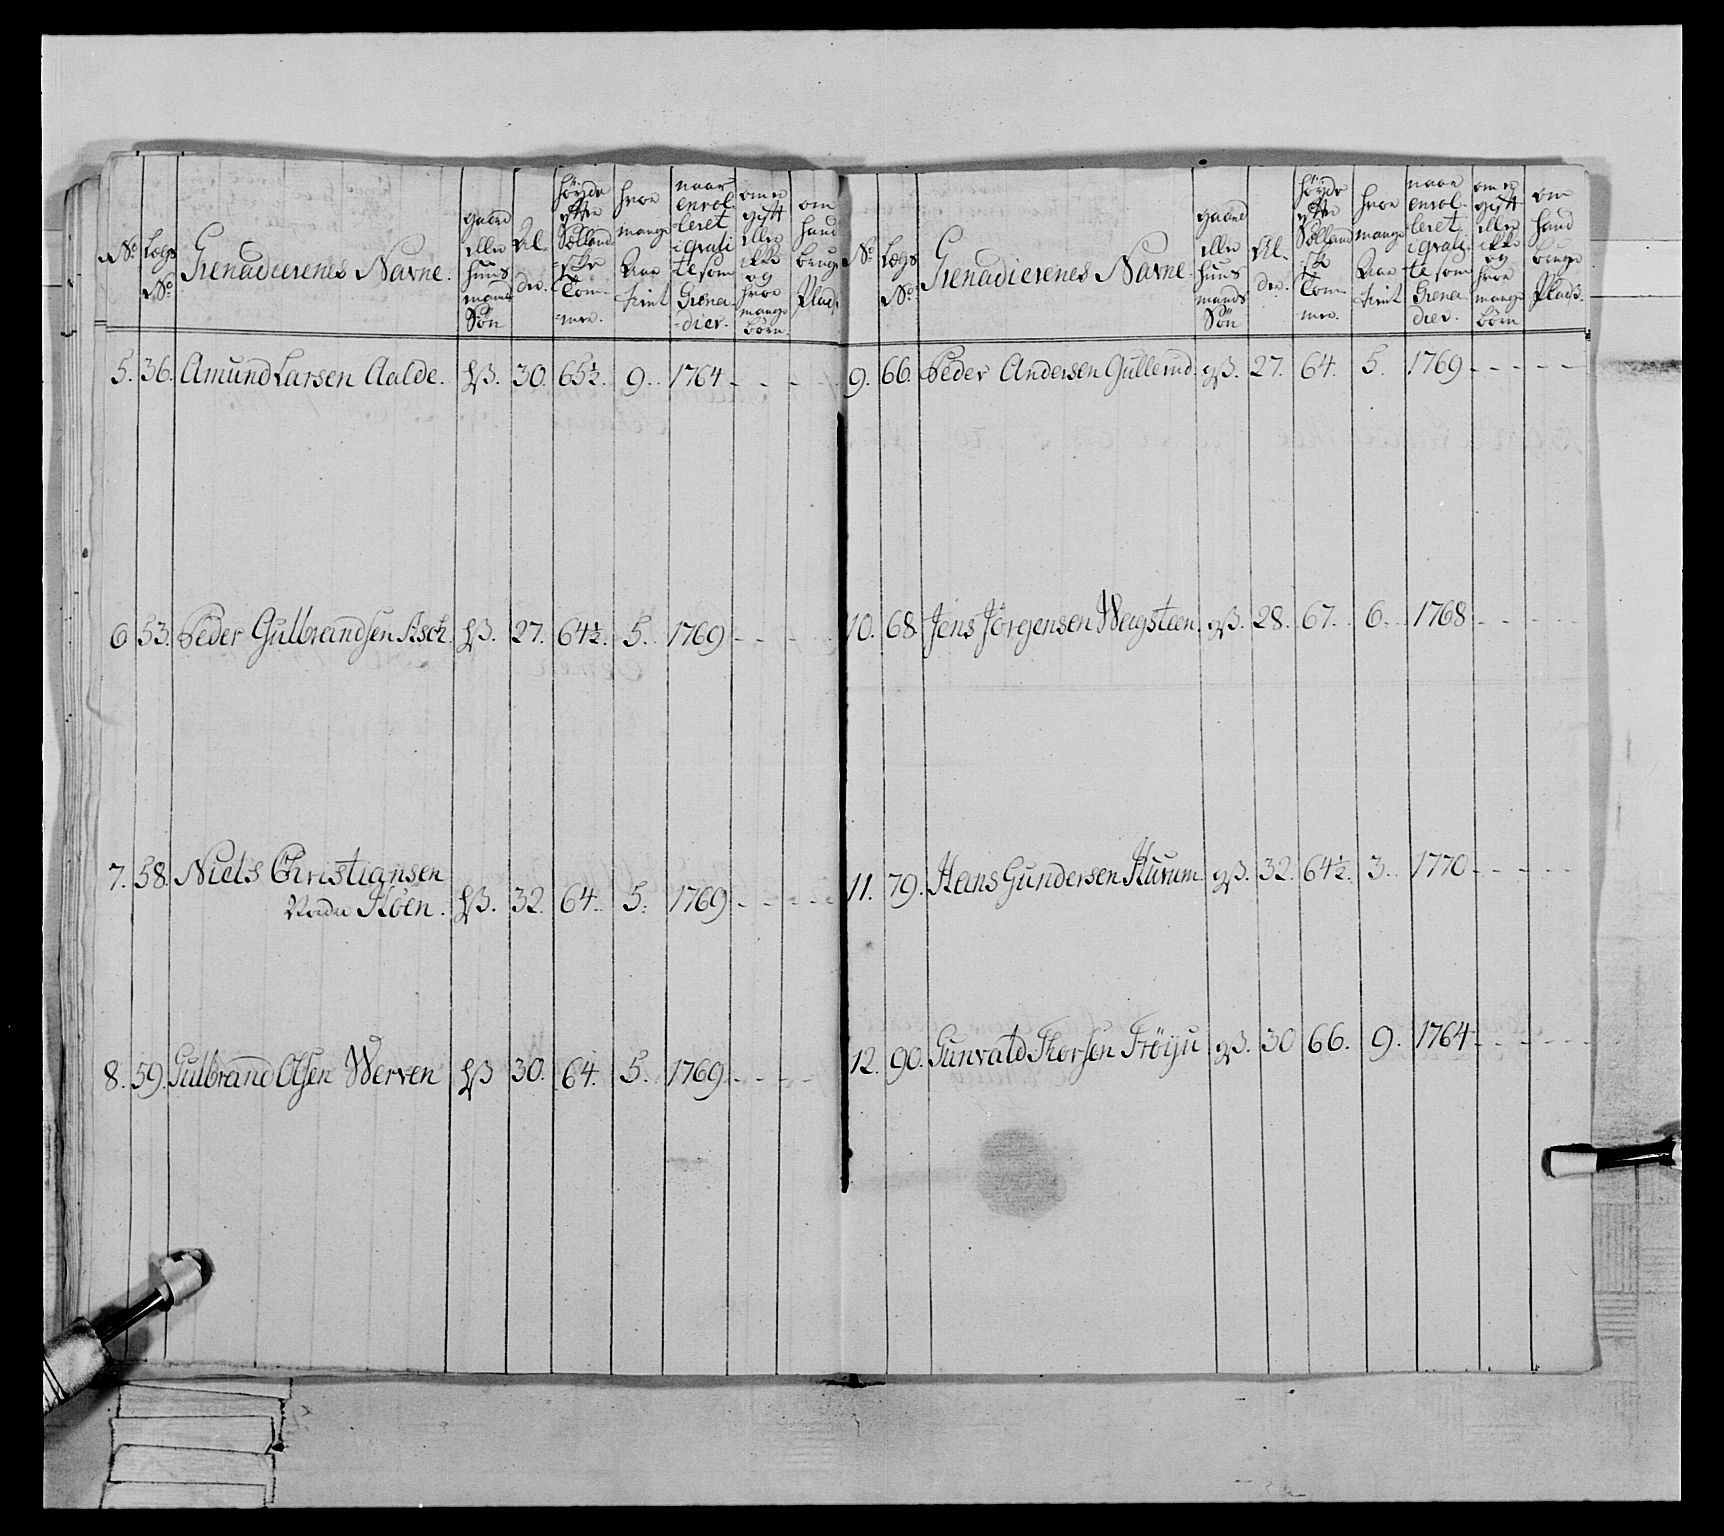 No Lægs No Grenadierenes Navne. gaard eller huusmands Søn Alder. høyde efter Sællandske Tommer. hvor mange Aar tient naar enrolleret i gvali te som Grenadier. om er gift eller ikke og hvor mange børn. om hand bruger Plads.
5. 36. Amund Larsen Aalde. hß. 30. 65½. 9. 1764 - - - -
6 53. Peder Gulbrandsen Asch. hß. 27. 64½. 5. 1769 - - - -
7. 58. Niels Christiansen
Koen. hß. 32. 64. 5. 1769 - - - -
8. 59. Gulbrand Olsen Werven hß 30. 64. 5. 1769 - - - -
No Lægs No. Grenadierenes Navne gaard eller huusmands Søn Alder. høyde efter Sællandske Tommer. hvor mange Aar tient naar enrolleret i gvali te som Grenadier. om er gift eller ikke og hvor mange børn om hand bruger Plads.
9. 66. Peder Andersen Gullerud. gß. 27. 64. 5. 1769 - - - - -
10. 68 Jens Jörgensen Wegsteen. gß. 28. 67. 6. 1768 - - - -
11. 79. Hans Gundersen Kurum. gß. 32. 64½. 3. 1770 - - - -
12. 90. Gunvald Thorsen Fröyu gß. 30 66. 9. 1764 - - - - -